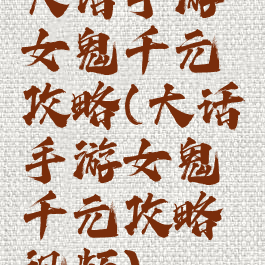 大话手游
女鬼千元
攻略(大话
手游女鬼
千元攻略
视频)